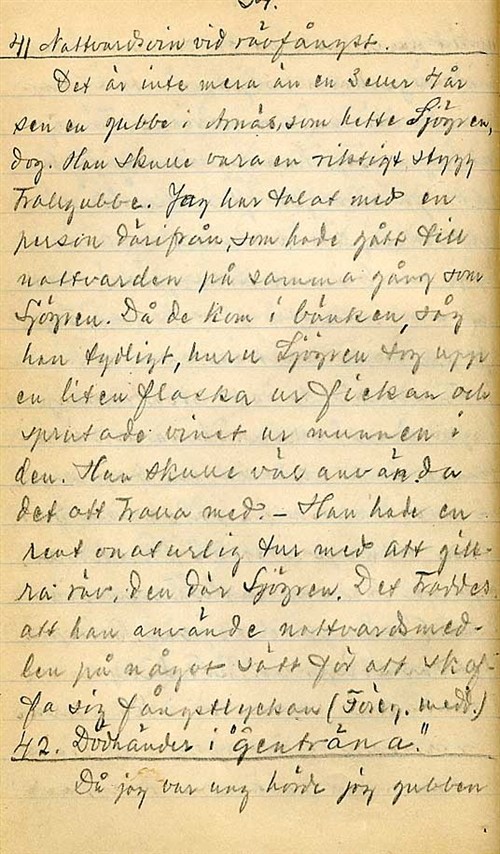 41 Nattvardsvin vid rävfångst.
Det är inte mera än en 3 eller 4 år
sen en gubbe i Arnäs, som hette Sjögren,
dog. Han skulle vara en riktigt stygg
trollgubbe. Jag har talat med en
person därifrån, som hade gått till
nattvarden på samma gång som
Sjögren. Då de kom i bänken, såg
han tydligt, huru Sjögren tog upp
en liten flaska ur fickan och
sprutade vinet ur munnen i
den. Han skulle väl använda
det att trolla med. – Han hade en
rent onaturlig tur med att gill-
ra räv, den där Sjögren. Det troddes
att han använde nattvardsmed-
len på något sätt för att skaf-
fa sig fångstlyckan (Föreg. medd.)
42. Dödhänder i "genträna."
Då jag var ung hörde jag gubben